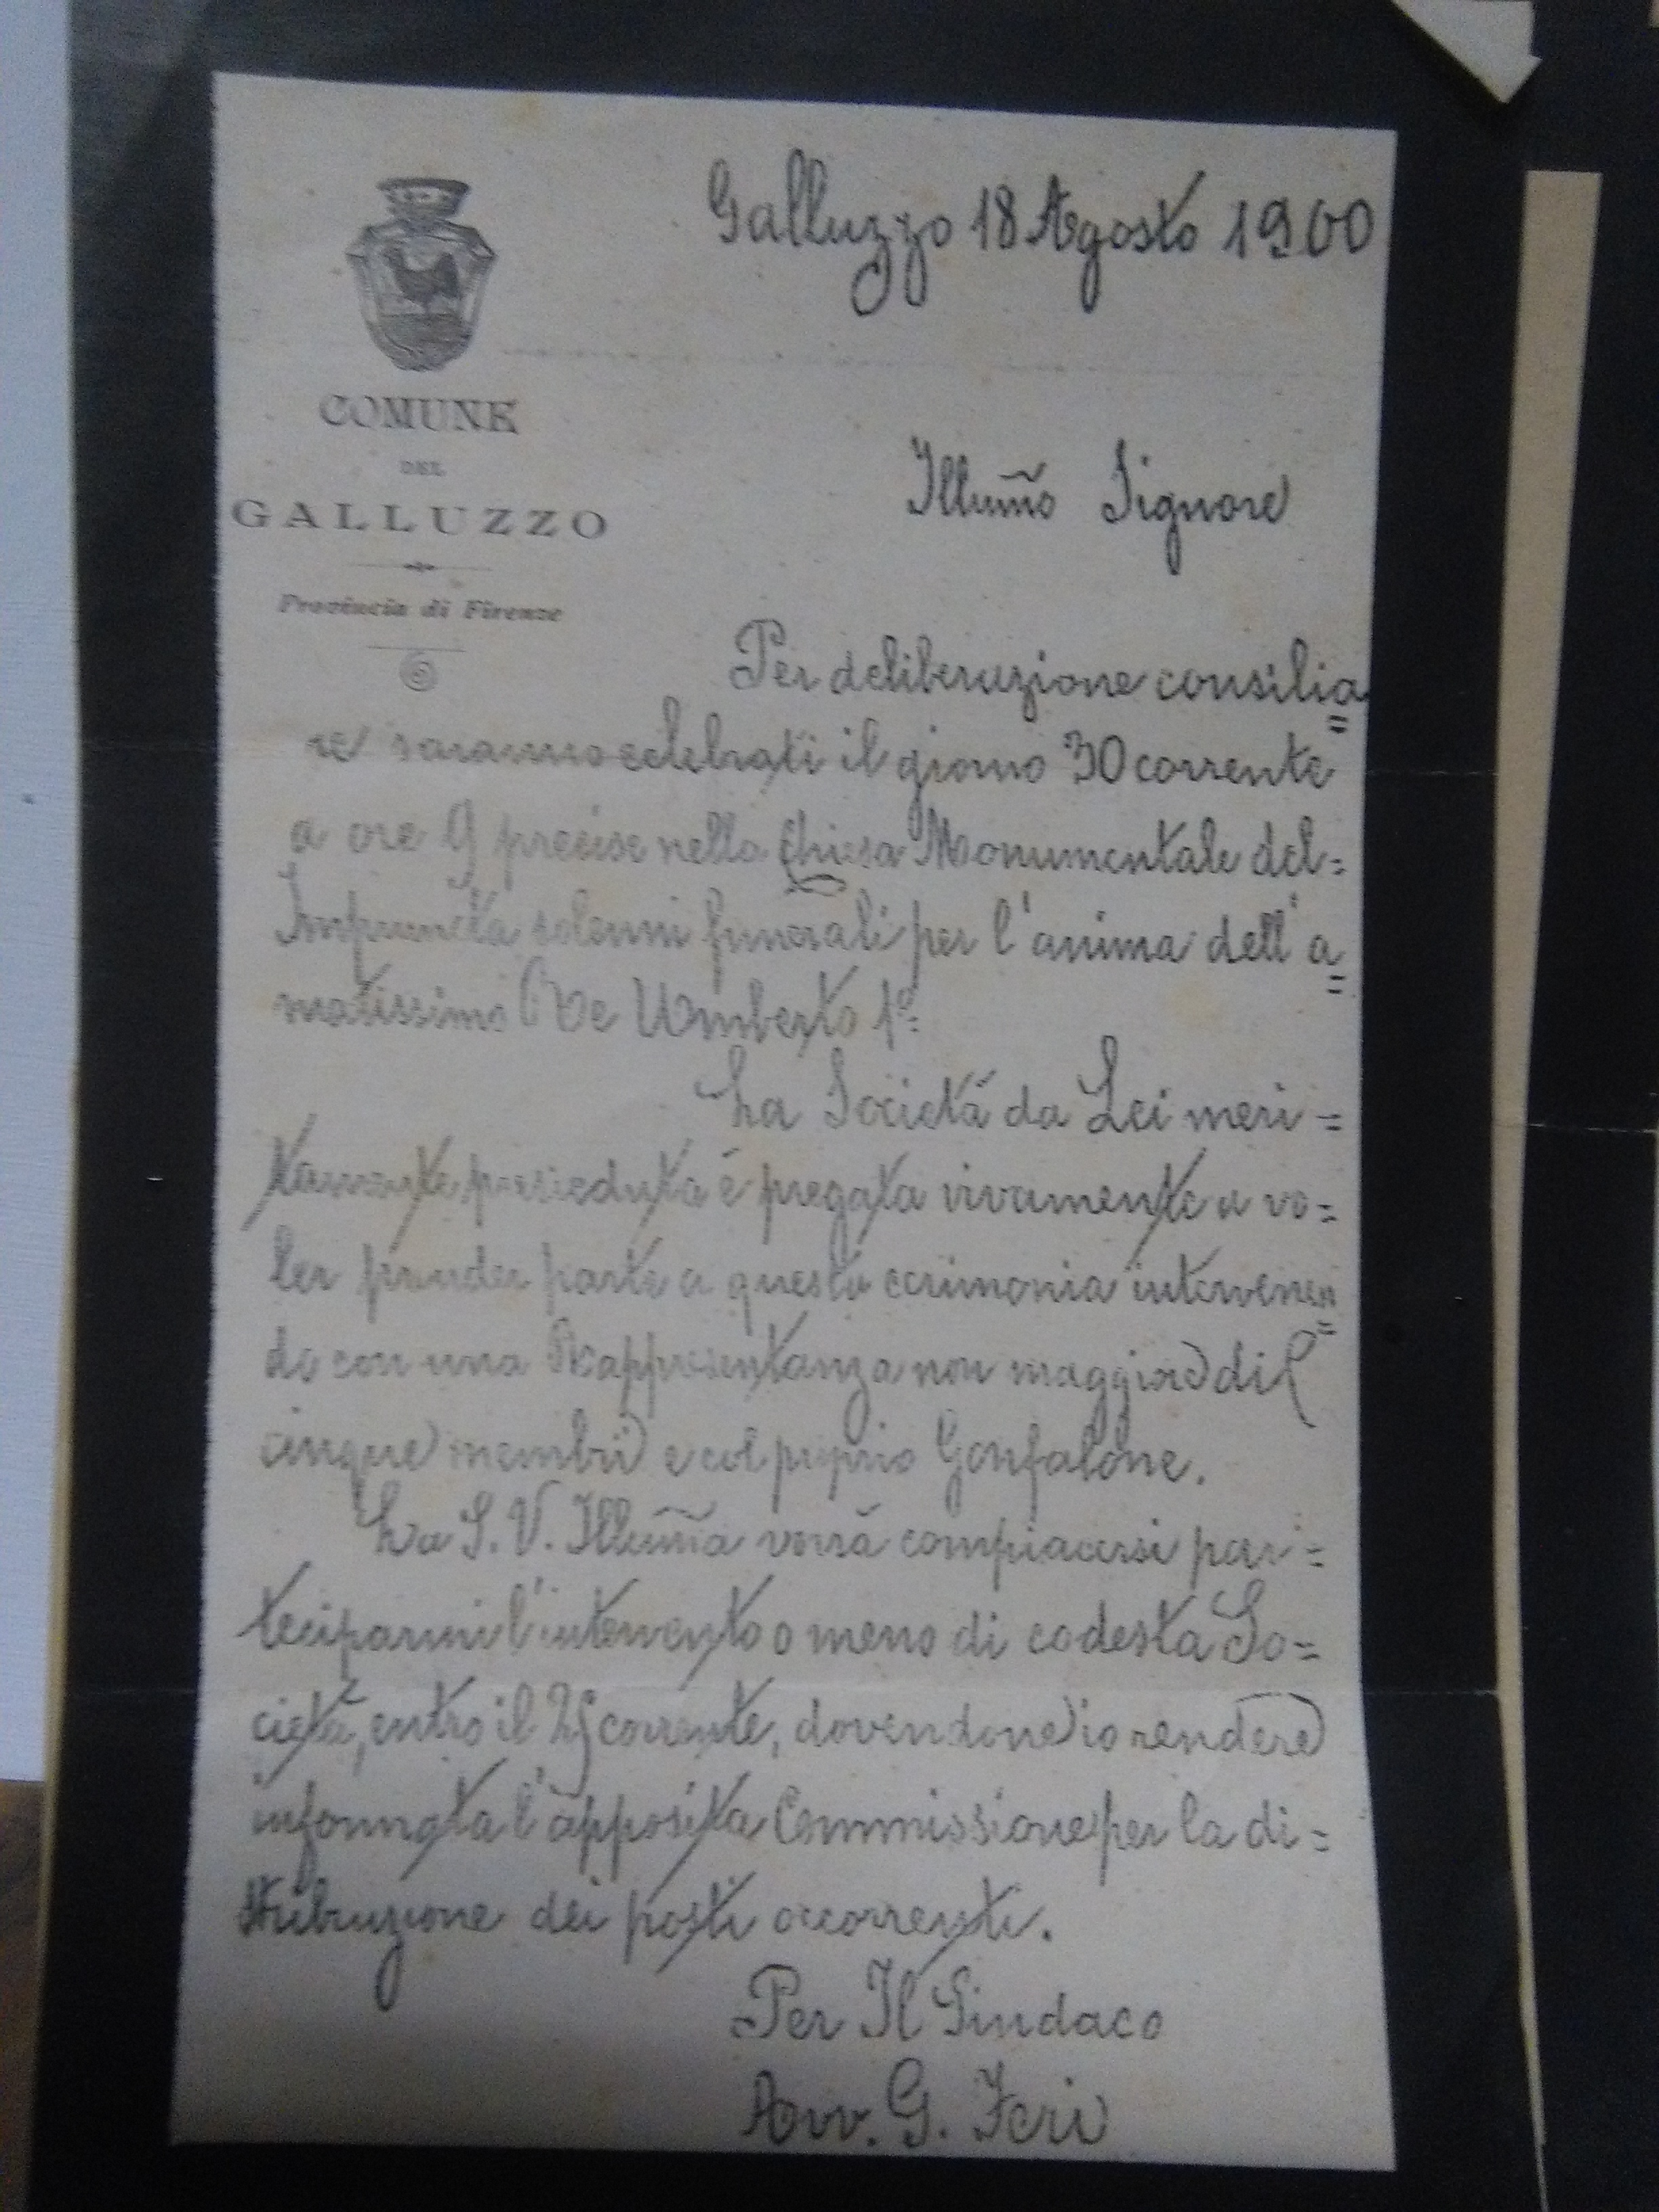 Galluzzo 18 Agosto 1900
COMUNE
DEL
GALLUZZO
Provincia di Firenze
Illum̃o Signore
Per deliberazione consilia=
re saranno celebrati il giorno 30 corrente
a ore 9 precise nella Chiesa Monumentale del=
l'Impruneta solenni funerali per l'anima dell'a=
matissimo Re Umberto 1º=
La Società da Lei meri=
tamente presieduta è pregata vivamente a vo=
ler prender parte a questa cerimonia intervenen=
do con una Rappresentanza non maggiore di
cinque membri e col proprio Gonfalone.
La S. V. Illum̃a vorrà compiacersi par=
teciparmi l'intervento o meno di codesta So=
cietà, entro il 25 corrente, dovendone io rendere
informata l'apposita Commissione per la di=
stribuzione dei posti occorrenti.
Per Il Sindaco
Avv. G.